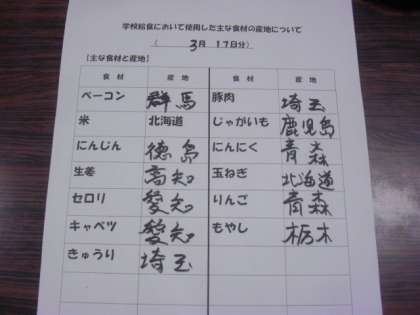 学校給食において使用した主な食材の産地について
( 3月 17日分)
【主な食材と産地】
食材 産地 食材 産地
ベーコン 群馬 豚肉 埼玉
米 北海道 じゃがいも 鹿児島
にんじん 徳島 にんにく 青森
生姜 高知 玉ねぎ 北海道
セロリ 愛知 りんご 青森
キャベツ 愛知 もやし 栃木
きゅうり 埼玉